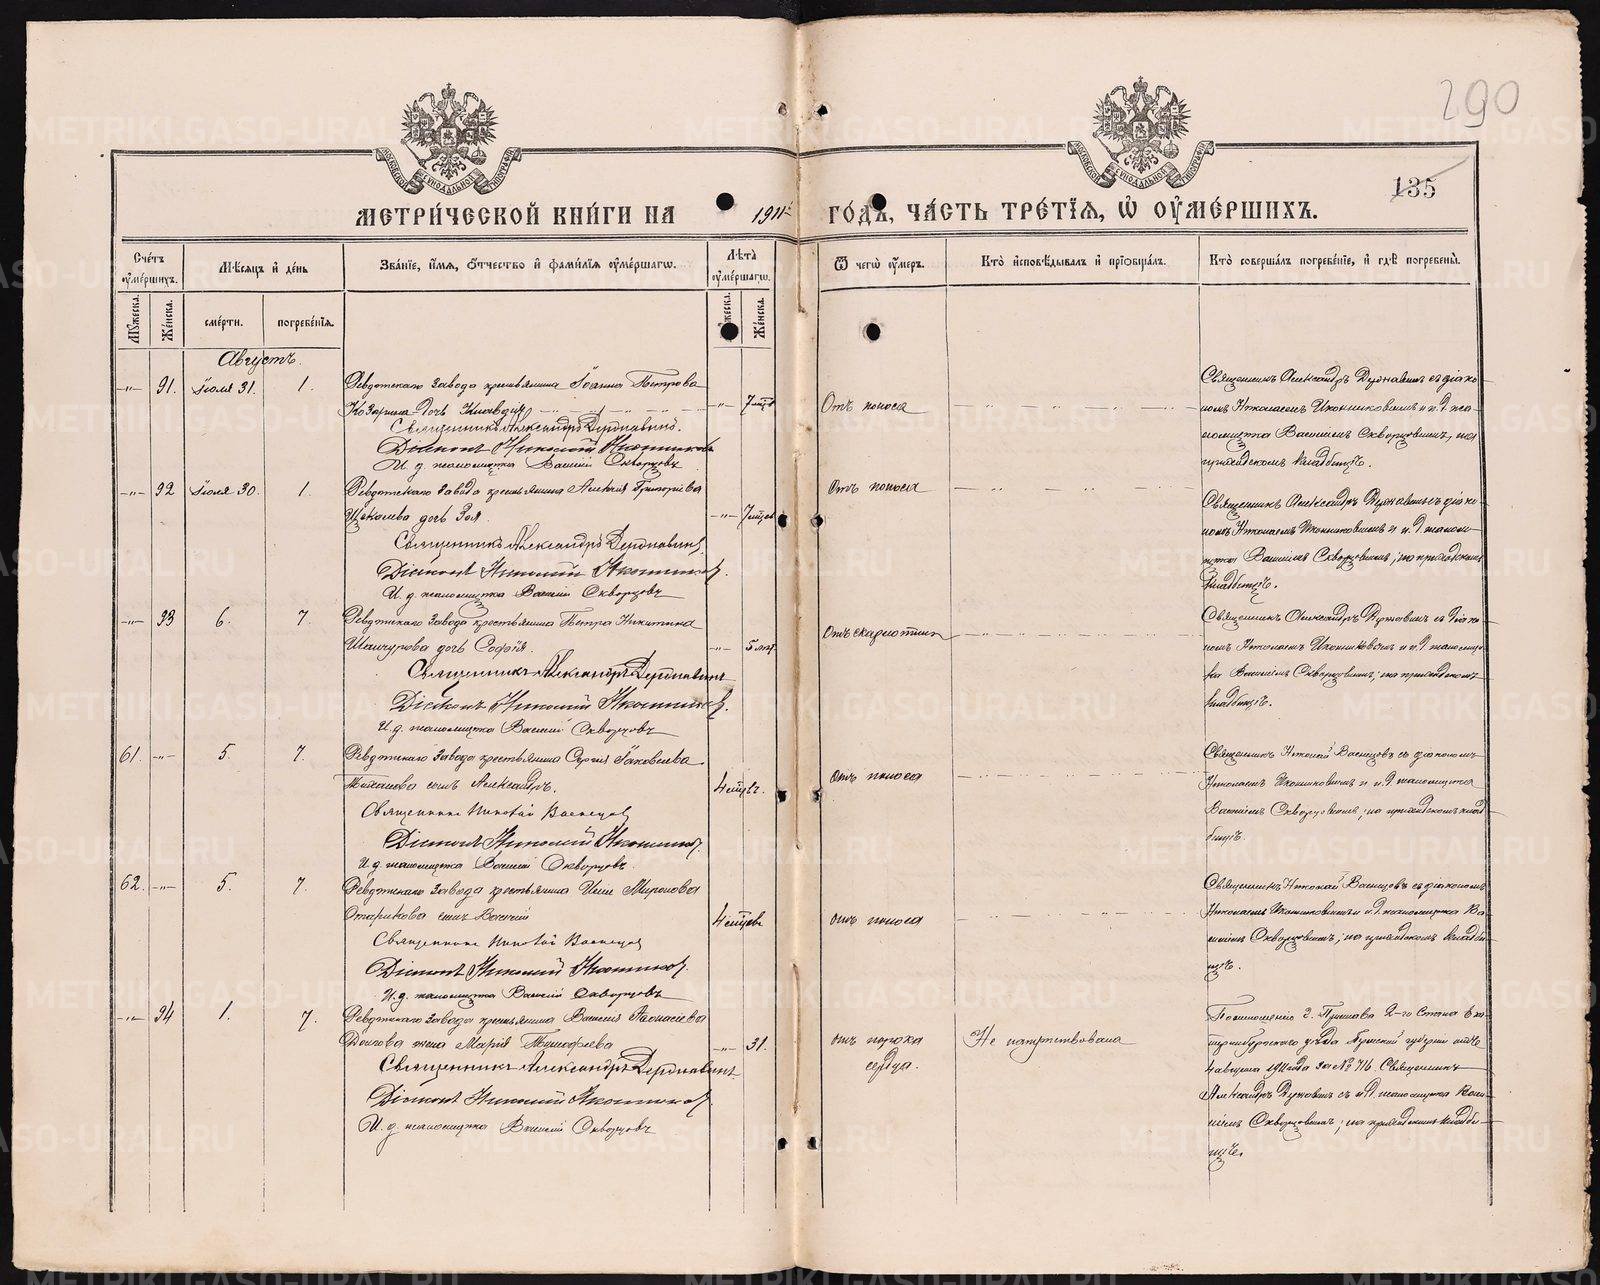 290
135
МОСКОВСКОЙ СѴНОДАЛЬНОЙ ТИПОГРАФІИ
МОСКОВСКОЙ СѴНОДАЛЬНОЙ ТИПОГРАФІИ
МЕТРИ́ЧЕСКОЙ КНИ́ГИ НА 1911 ГО́ДЪ, ЧА́СТЬ ТРЕ́ТІѦ, Ѡ҆ ОУ҆МЕ́РШИХЪ.
Сче́тъ оу҆ме́ршихъ.
Мѣ́сяцъ и҆ де́нь
Зва́нїе, и҆́мѧ, ѻ҆́тчество и҆ фами́лїѧ оу҆ме́ршагѡ.
Лѣ́та оу҆ме́ршагѡ.
Ѿ чегѡ̀ оу҆́меръ.
Кто̀ и҆сповѣ́дывалъ и҆ прїѡбща́лъ.
Кто̀ соверша́лъ погребе́нїе, и҆ гдѣ̀ погребены̀.
Мꙋ́жеска.
Же́нска.
сме́рти.
погребе́нїѧ.
Же́нска.
Августъ.
—"— 91. Іюля 31. 1. Ревдтскаго завода крестьянина Іоанна Петрова
Козырина дочь Клавдія —"— 7 мцв
Священникъ Александръ Державинъ.
Діаконъ Николай Иконниковъ
И. д. псаломщика Василій Скворцовъ
Отъ поноса
Священникъ Александръ Державинъ съ діако-
номъ Николаемъ Иконниковымъ и и. д. пса-
ломщика Василіемъ Скворцовымъ, на
приходскомъ кладбищѣ.
—"— 92 Іюля 30. 1. Ревдтскаго завода крестьянина Алексія Григоріева
Щеколева дочь Зоя. —"— 7 мцев
Священникъ Александръ Державинъ.
Діаконъ Николай Иконниковъ.
И. д. псаломщика Василій Скворцовъ
Отъ поноса
Священникъ Александръ Державинъ съ діако-
номъ Николаемъ Иконниковымъ и и. д. псалом-
щика Василіемъ Скворцовымъ, на приходскомъ
кладбищѣ.
—"— 93 6. 7. Ревдтскаго завода крестьянина Петра Никитина
дочь Софія. —"— 5 лѣт.
Священникъ Александръ Державинъ
Діаконъ Николай Иконниковъ.
И. д. псаломщика Василій Скворцовъ
Отъ скарлатины
Священникъ Александръ Державинъ съ діако-
номъ Николаемъ Иконниковымъ и и. д. псаломщи-
ка Василіемъ Скворцовымъ, на приходскомъ
кладбищѣ.
61. —"— 5. 7. Ревдтскаго завода крестьянина Сергія Іаковлева
сынъ Александръ. 4 мцевъ.
Священникъ Николай Васнецов
Діаконъ Николай Иконниковъ.
И. д. псаломщика Василій Скворцовъ.
отъ поноса
Священникъ Николай Васнецовъ съ діакономъ
Николаемъ Иконниковымъ и и. д. псаломщика
Василіемъ Скворцовымъ, на приходскомъ клад-
бищѣ.
62. —"— 5. 7. Ревдтскаго завода крестьянина Иліи Миронова
Старикова сынъ Василій 4 мцевъ
Священникъ Николай Васнецов
Діаконъ Николай Иконниковъ.
И. д. псаломщика Василій Скворцовъ
отъ поноса
Священникъ Николай Васнецовъ съ діакономъ
Николаемъ Иконниковымъ и и. д. псаломщика Ва-
силіемъ Скворцовымъ, на приходскомъ кладби-
щѣ.
—"— 94 1. 7. Ревдтскаго завода крестьянина Василія Аѳанасіева
жена Марія Тимоѳеева —"— 31.
Священникъ Александръ Державинъ
Діаконъ Николай Иконниковъ.
И. д. псаломщика Василій Скворцовъ
отъ порока
сердца.
Не напутствована
По отношенію г. Пристава 2-го Стана Ека-
теринбургскаго уѣзда Пермской губерніи отъ
4 августа 1911 года за № 716 Священникъ
Александръ Державинъ съ и. д. псаломщика Васи-
ліемъ Скворцовымъ, на приходскомъ кладби-
щѣ.